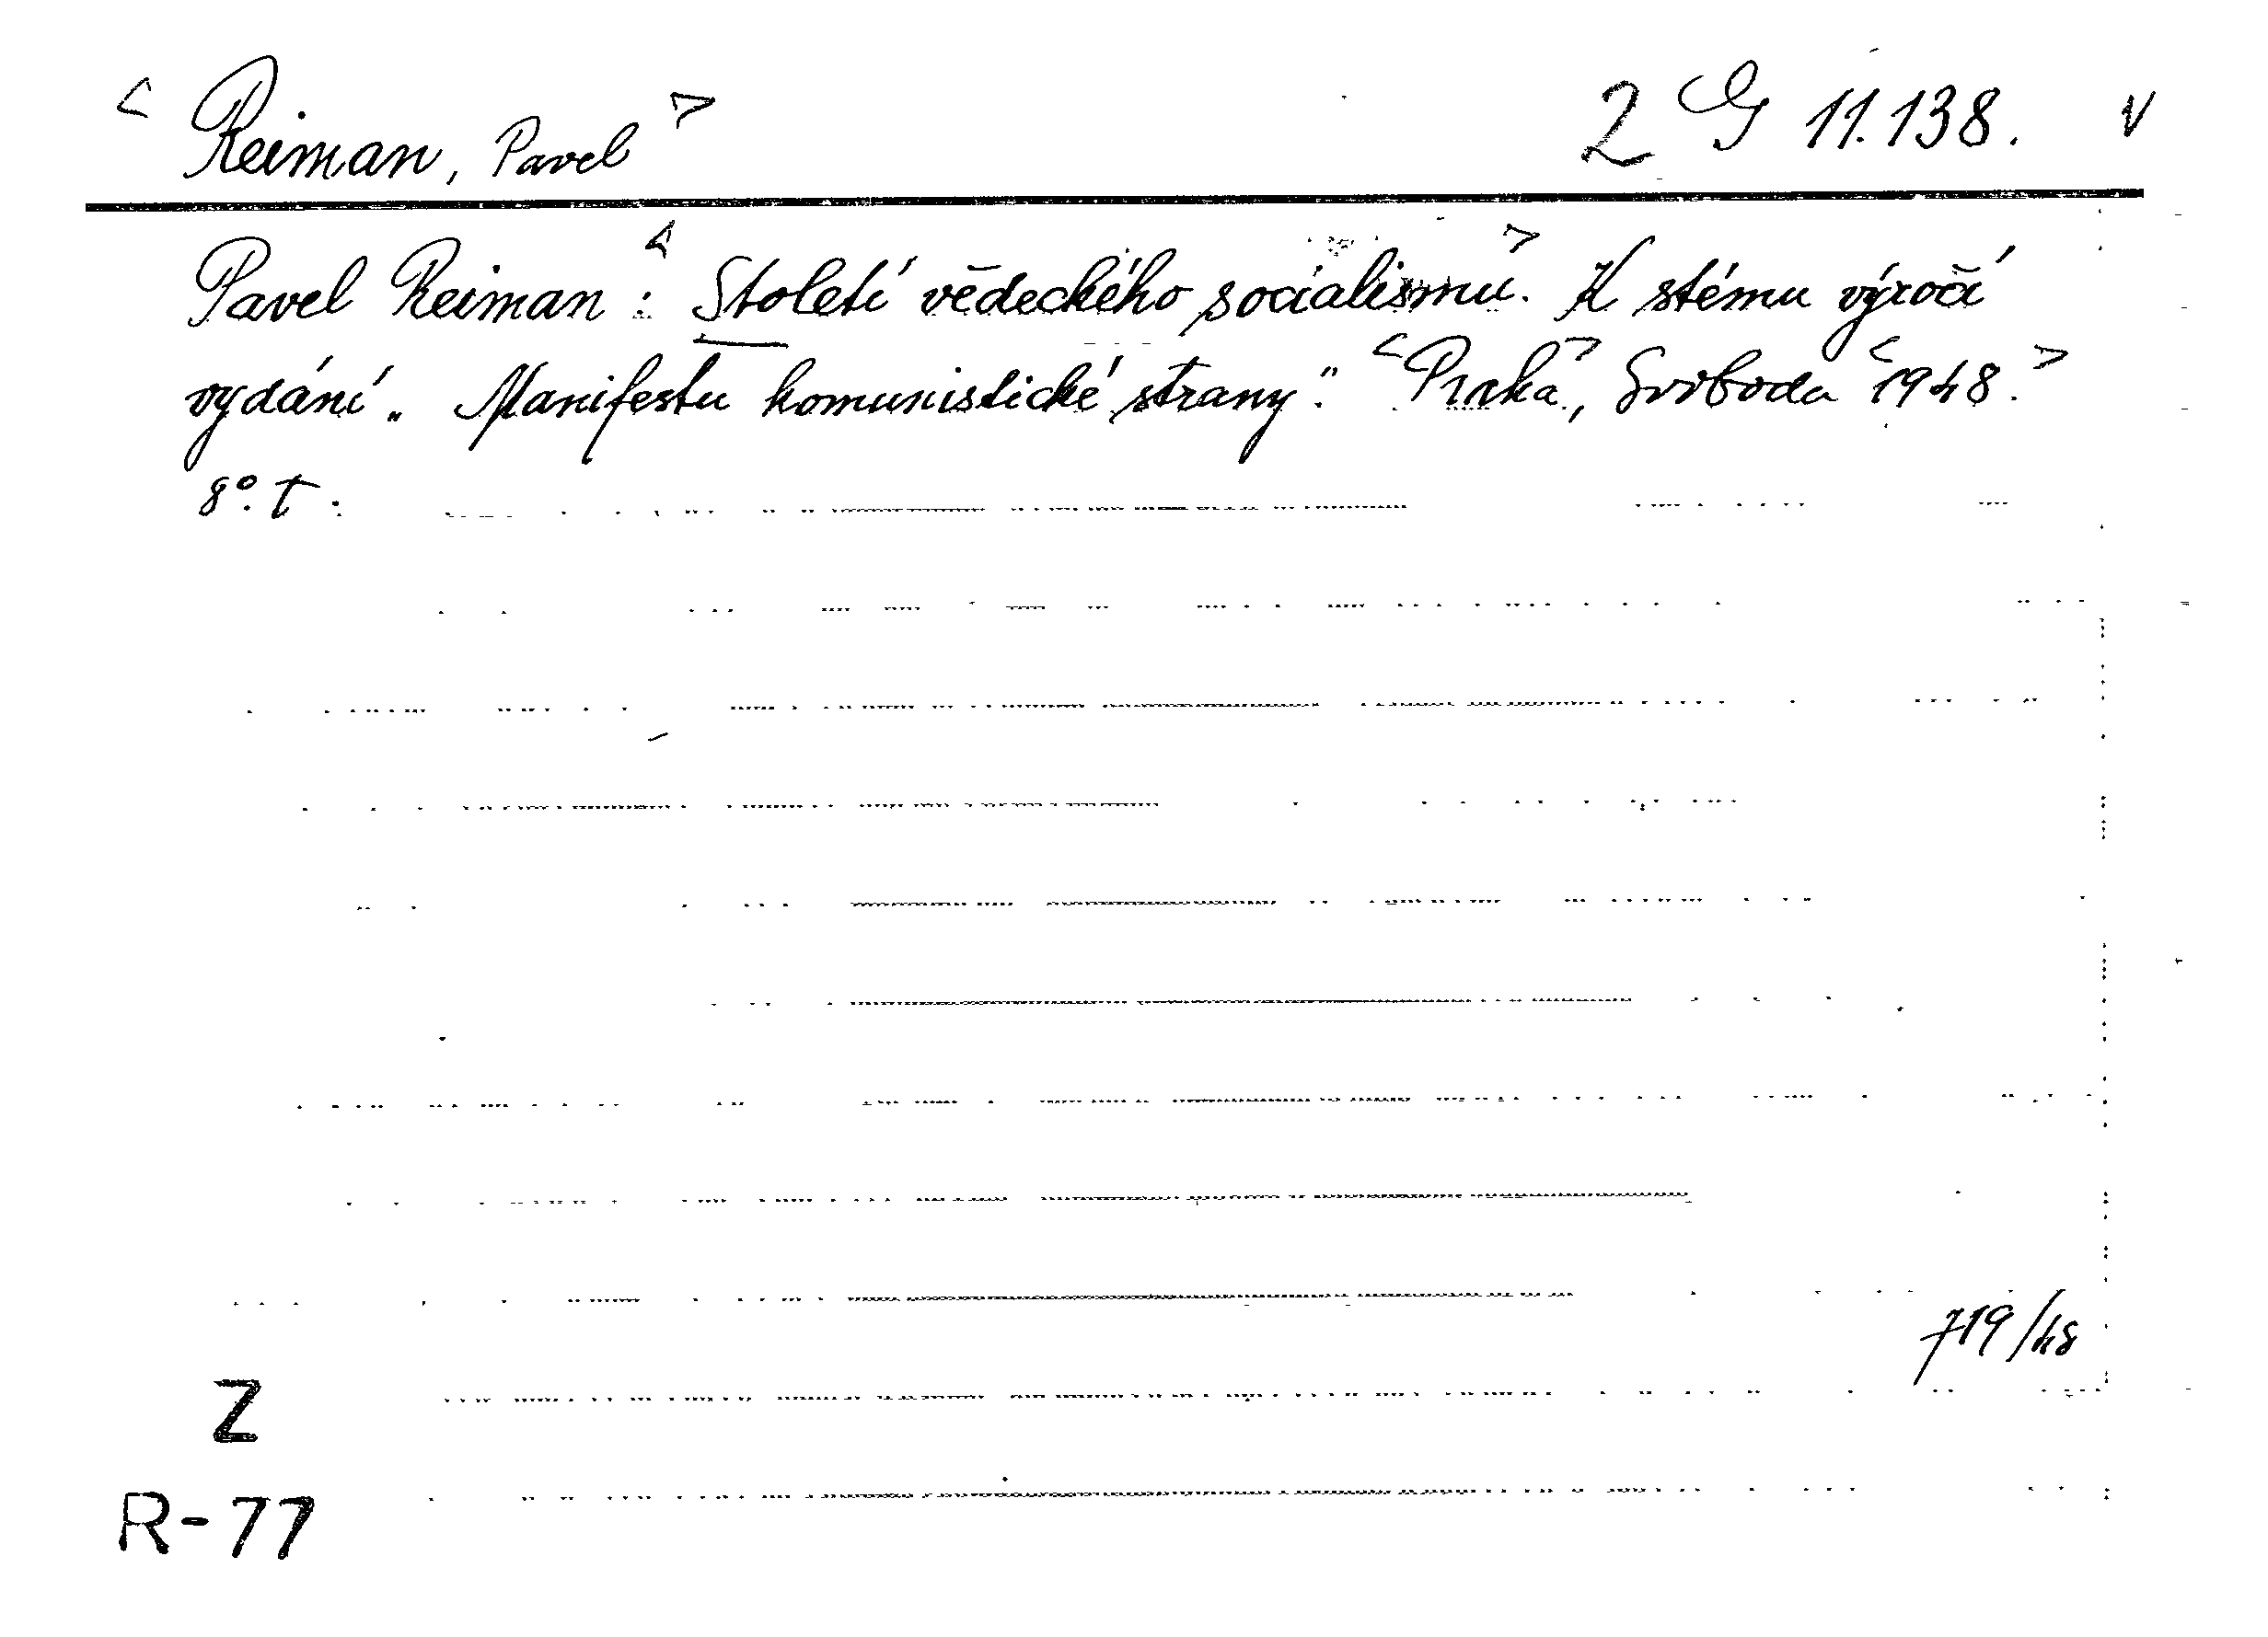 < Reiman, Pavel > 2 G 11.138. v
Pavel Reiman: < Století vědeckého socialismu. > K stému výročí
vydání „Manifestu komunistické strany". < Praha >, Svoboda < 1948. >
8°. t.
719/48
Z
R-77